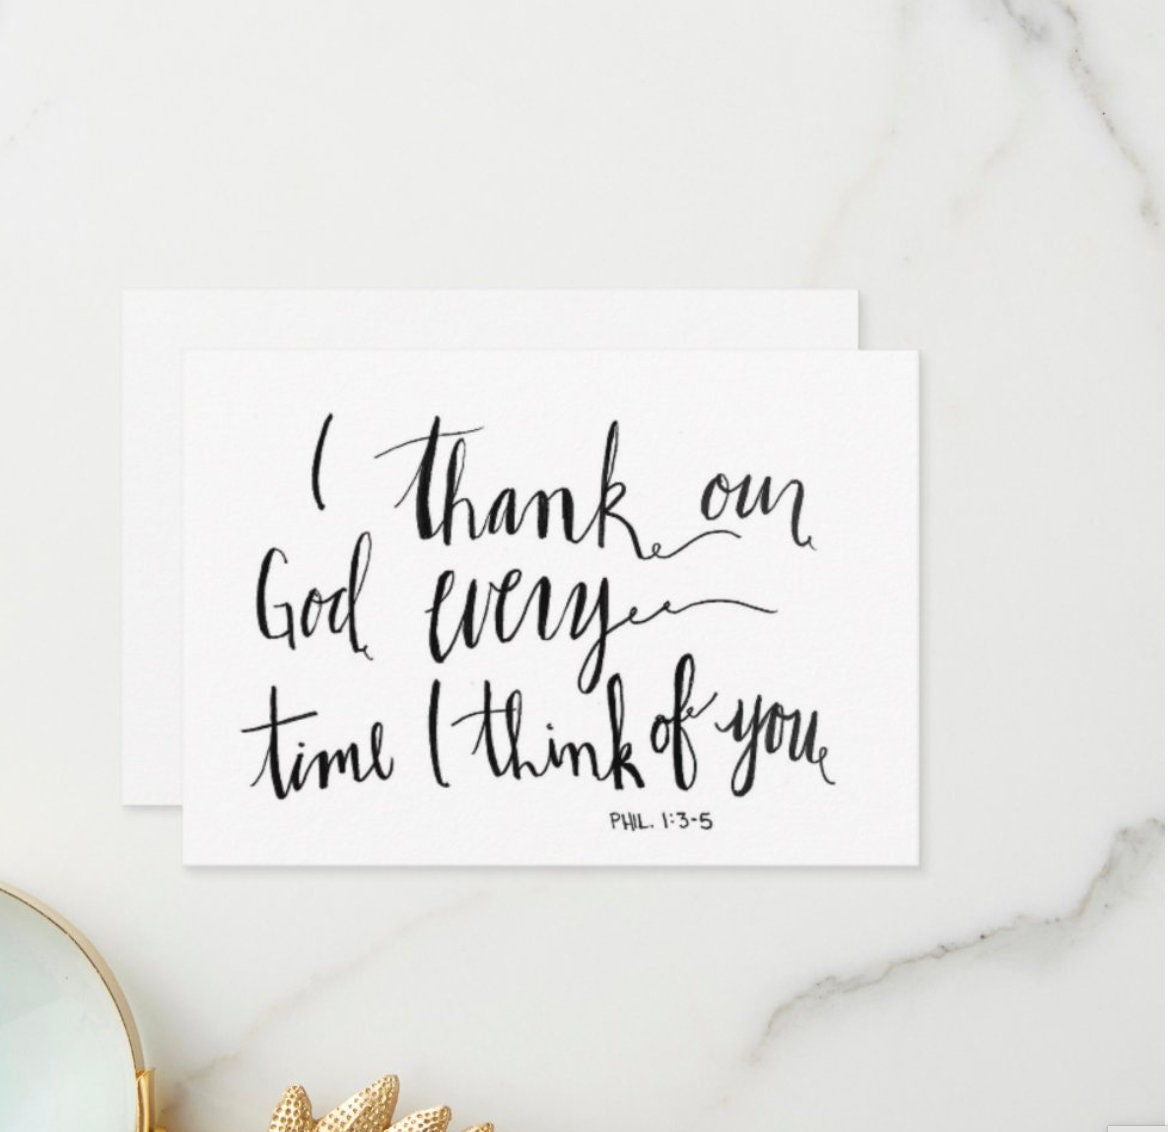 I thank our
God every
time I think of you
PHIL. 1:3-5